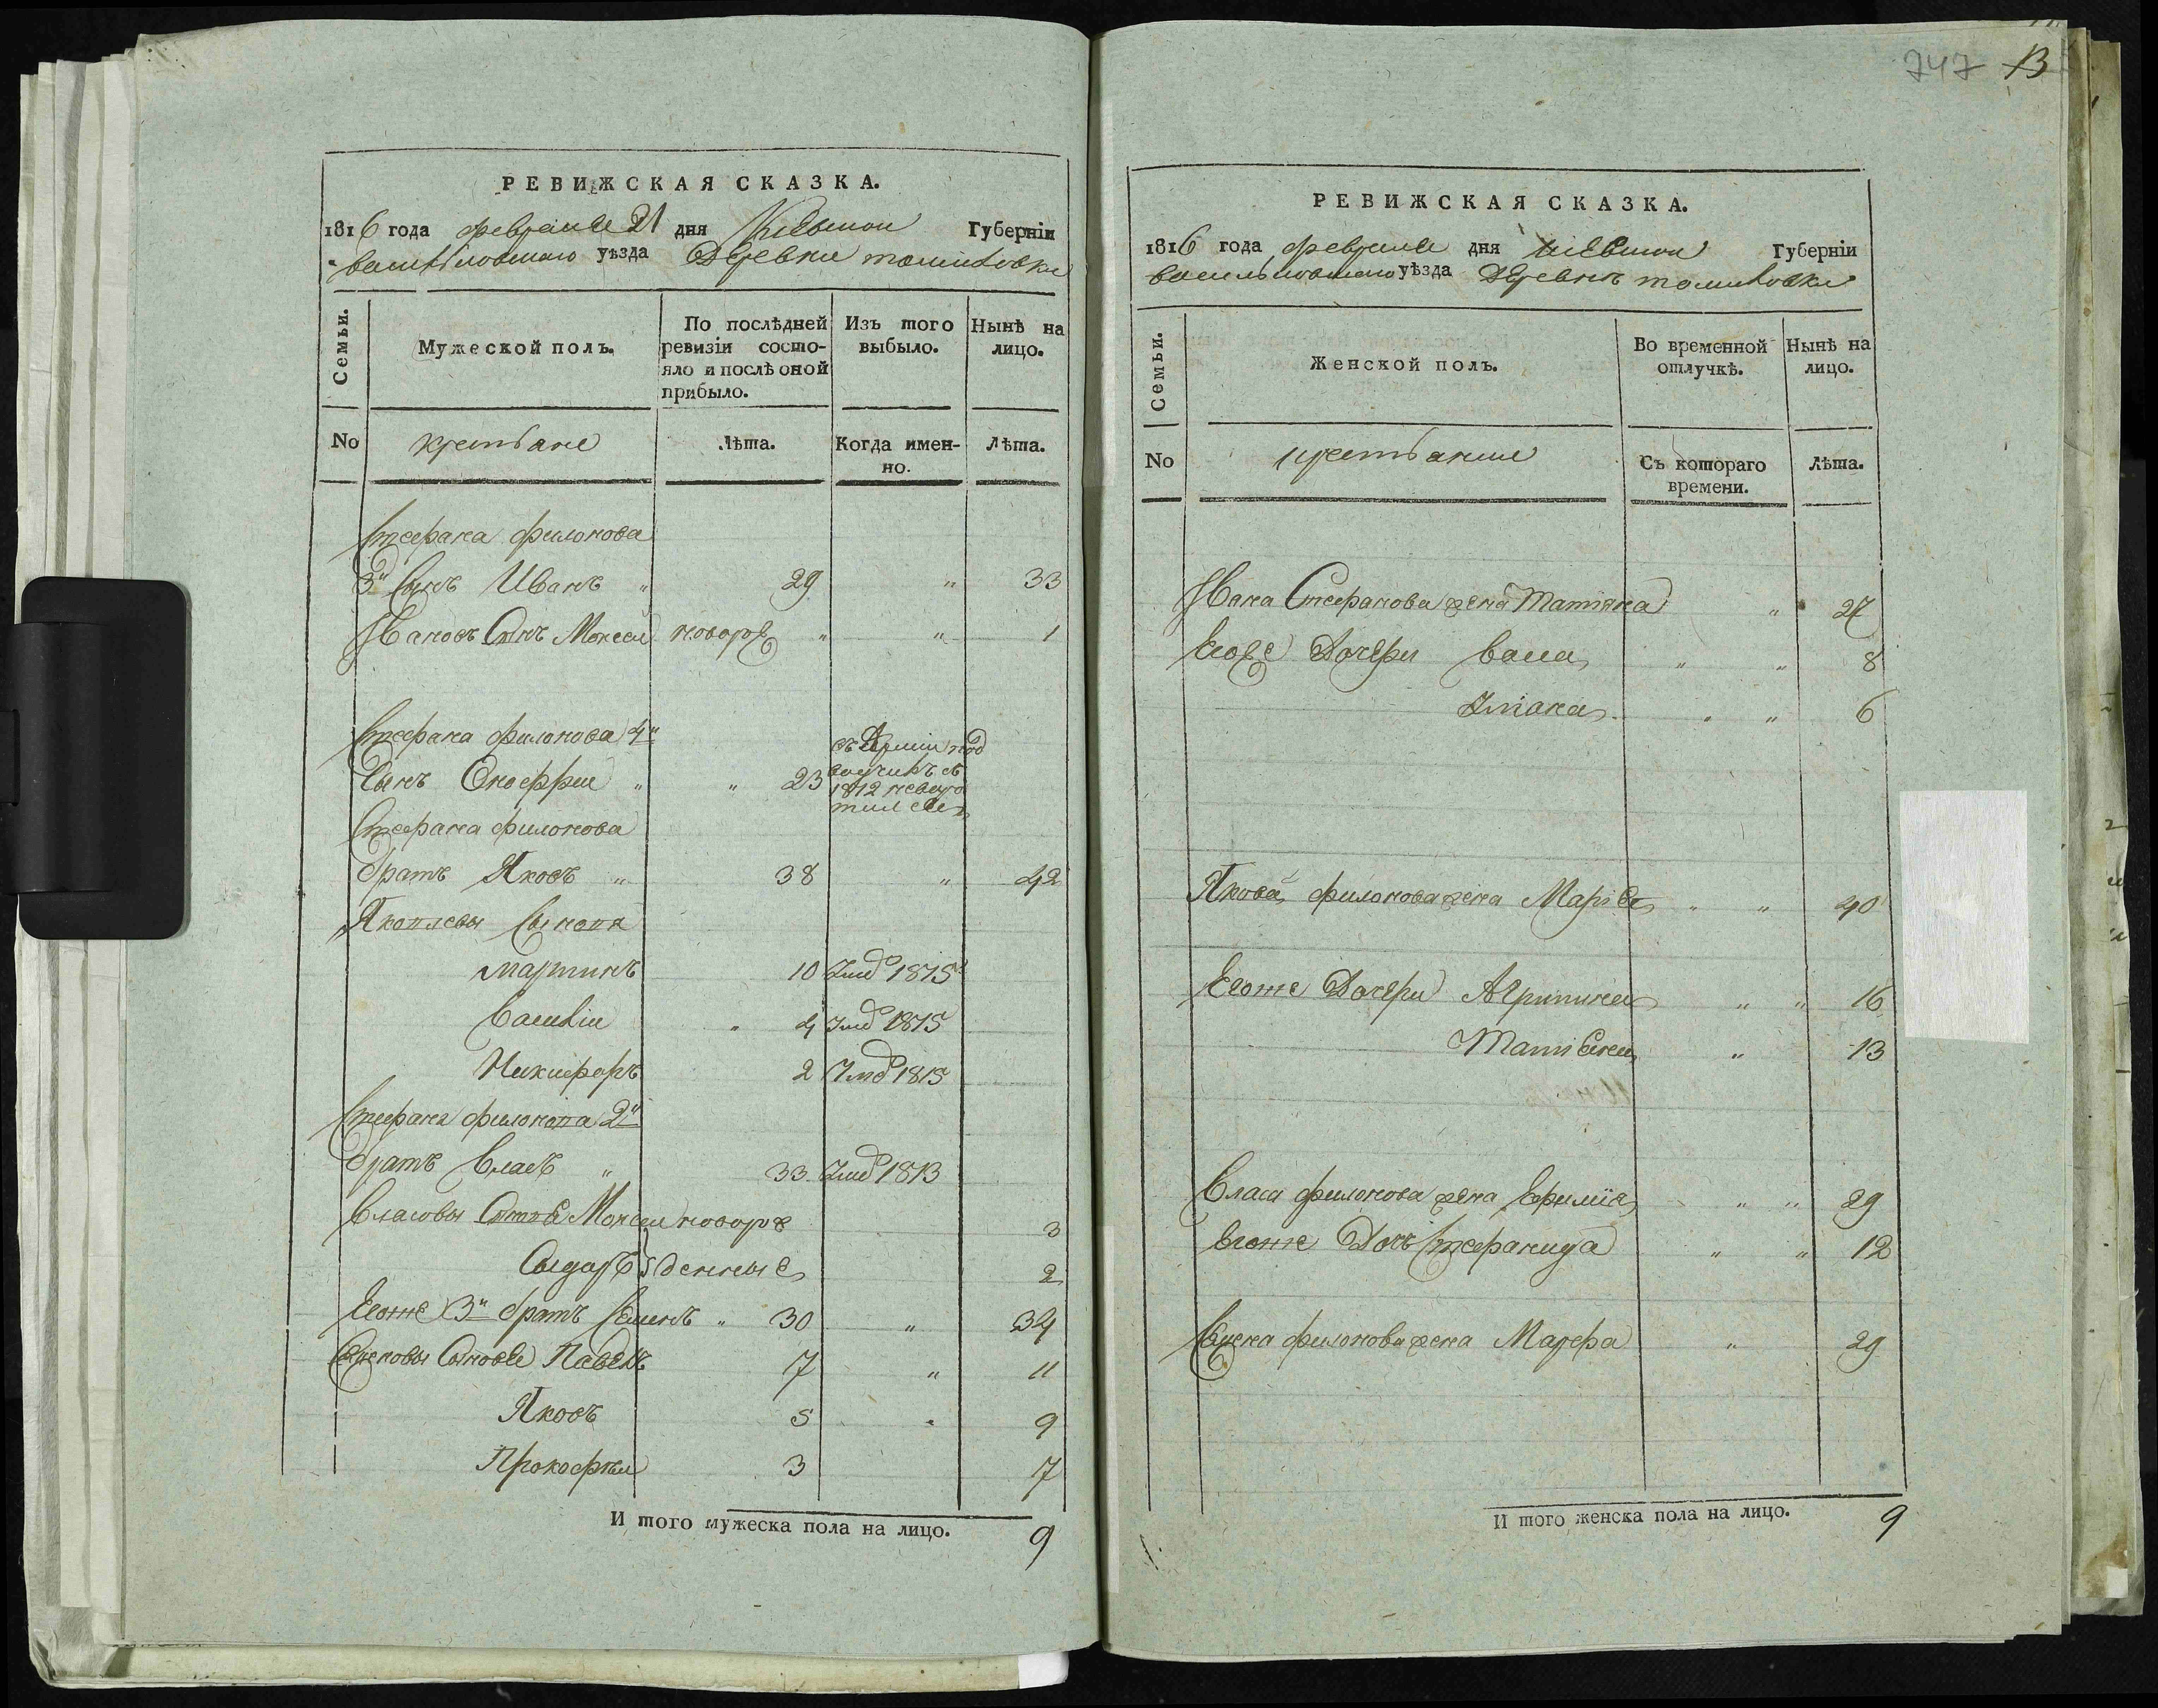 РЕВИЖСКАЯ СКАЗКА.
1816 года февраля 21 дня Киевской Губерніи
васильковскаго уѣзда Деревни томиловки
Семьи.
Мужеской полъ.
По послѣдней ревизіи состо-
яло и послѣ оной
прибыло.
Изъ того
выбыло.
Нынѣ на
лицо.
No крестьяне Лѣта. Когда имен-
но. Лѣта.
Стефана филонова
3й Сынъ Иванъ " 29 " 33
Ивановъ Сынъ Моисей новорож " " 1
Стефана филонова 4й
Сынъ Онофрій " " 23
1812 невозро
тился
Стефана филонова
братъ Яковъ " 38 " 42
Яковлевы Сыновя
Мартинъ 10 Умер 1815
Василій " 4 Умер 1815
Никифоръ 2 Умер 1815
Стефана филонова 2й
братъ Власъ " 33 Умер 1813
Власовы Сынов Моисей новорож 3
Сидоръ денные 2
Егоже 3й братъ Семенъ " 30 " 34
Сынове Павелъ 7 " 11
Яковъ 5 " 9
Прокофій 3 7
И того мужеска пола на лицо. 9
747 13
РЕВИЖСКАЯ СКАЗКА.
1816 года февраля дня Киевской Губерніи
васильковскаго уѣзда Деревни томиловки
Семьи.
Женской полъ.
Во временной
отлучкѣ.
Нынѣ на
лицо.
No крестьяне Съ котораго
времени. Лѣта.
Ивана Стефанова жена Татяна " 27
Егоже Дочери Васса " " 8
Уліана " " 6
Якова филонова жена Марія " " 40
Егоже Дочери Агрипина " " 16
Татіана " 13
Власа филонова жена Ефимія " " 29
Егоже Дочь Стефанида " " 12
филонова жена Марфа " 29
И того женска пола на лицо. 9